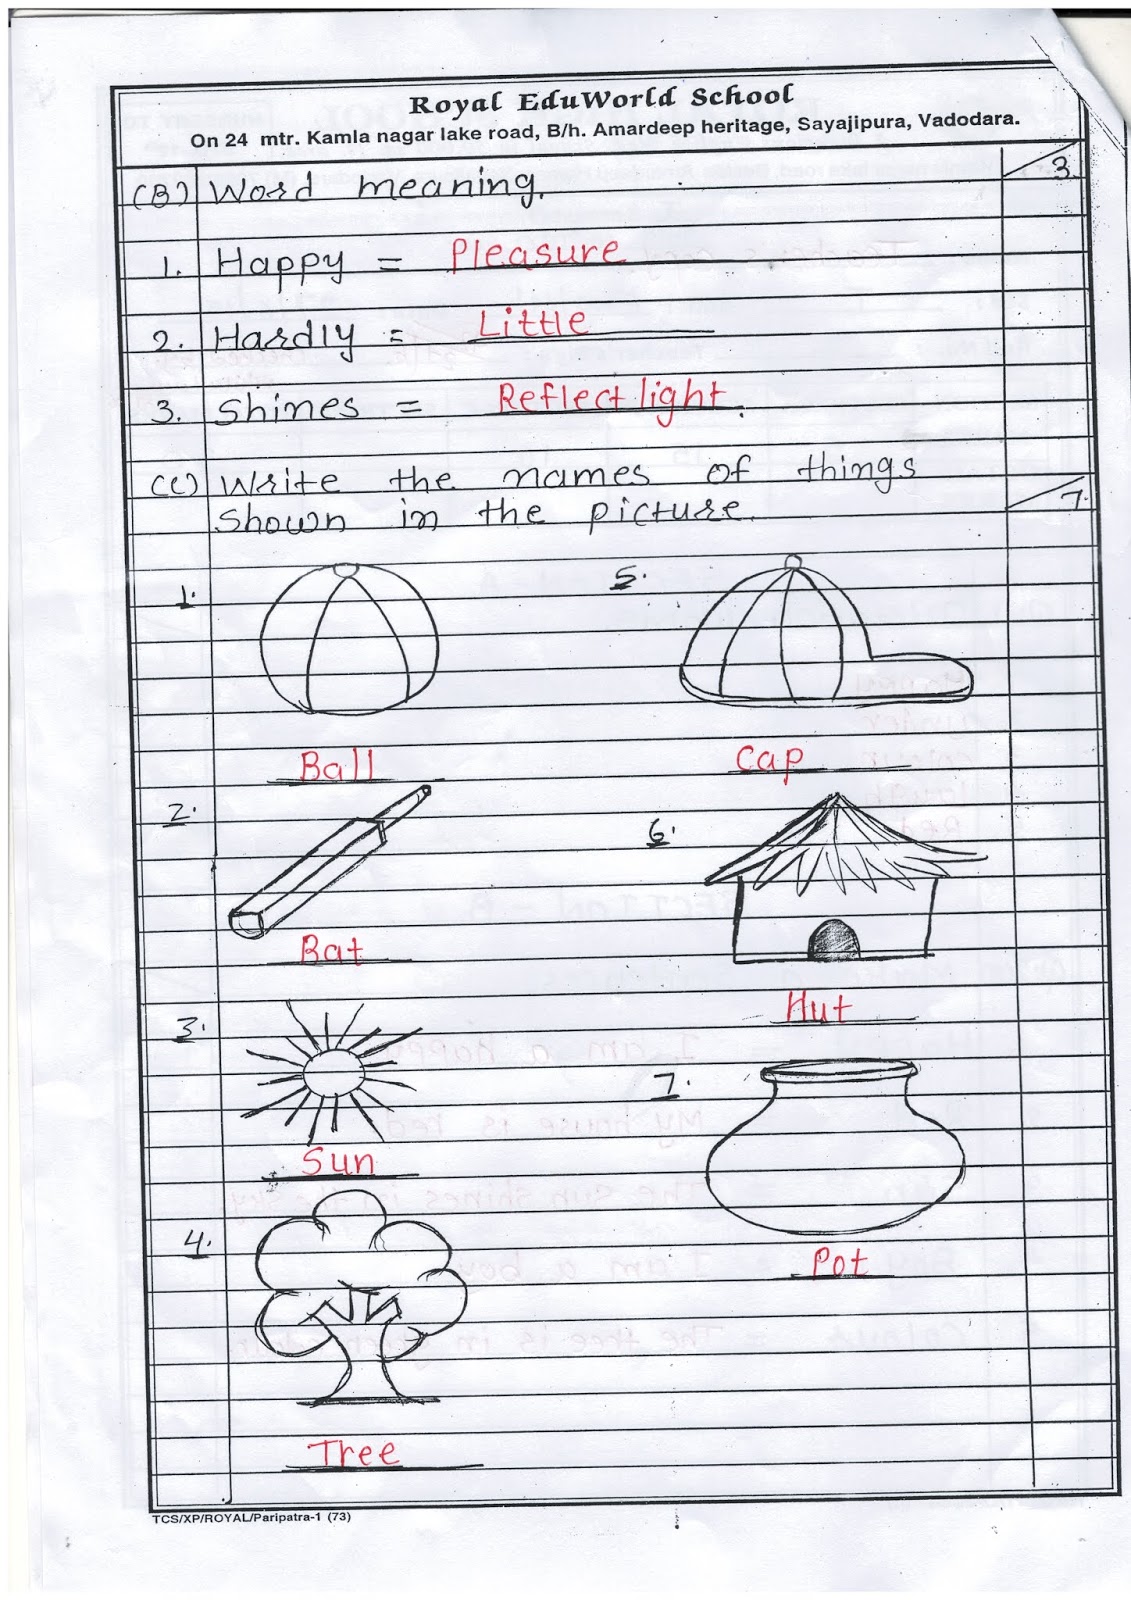 Royal EduWorld School
On 24 mtr. Kamla nagar lake road, B/h. Amardeep heritage, Sayajipura, Vadodara.
(B) Word meaning. 3
1. Happy = Pleasure
2. Hardly = Little
3. Shines = Reflect light.
(C) Write the names of things
shown in the picture. 7
1.
Ball
2.
Bat
3.
Sun
4.
Tree
5.
Cap
6.
Hut
7.
Pot
TCS/XP/ROYAL/Paripatra-1 (73)